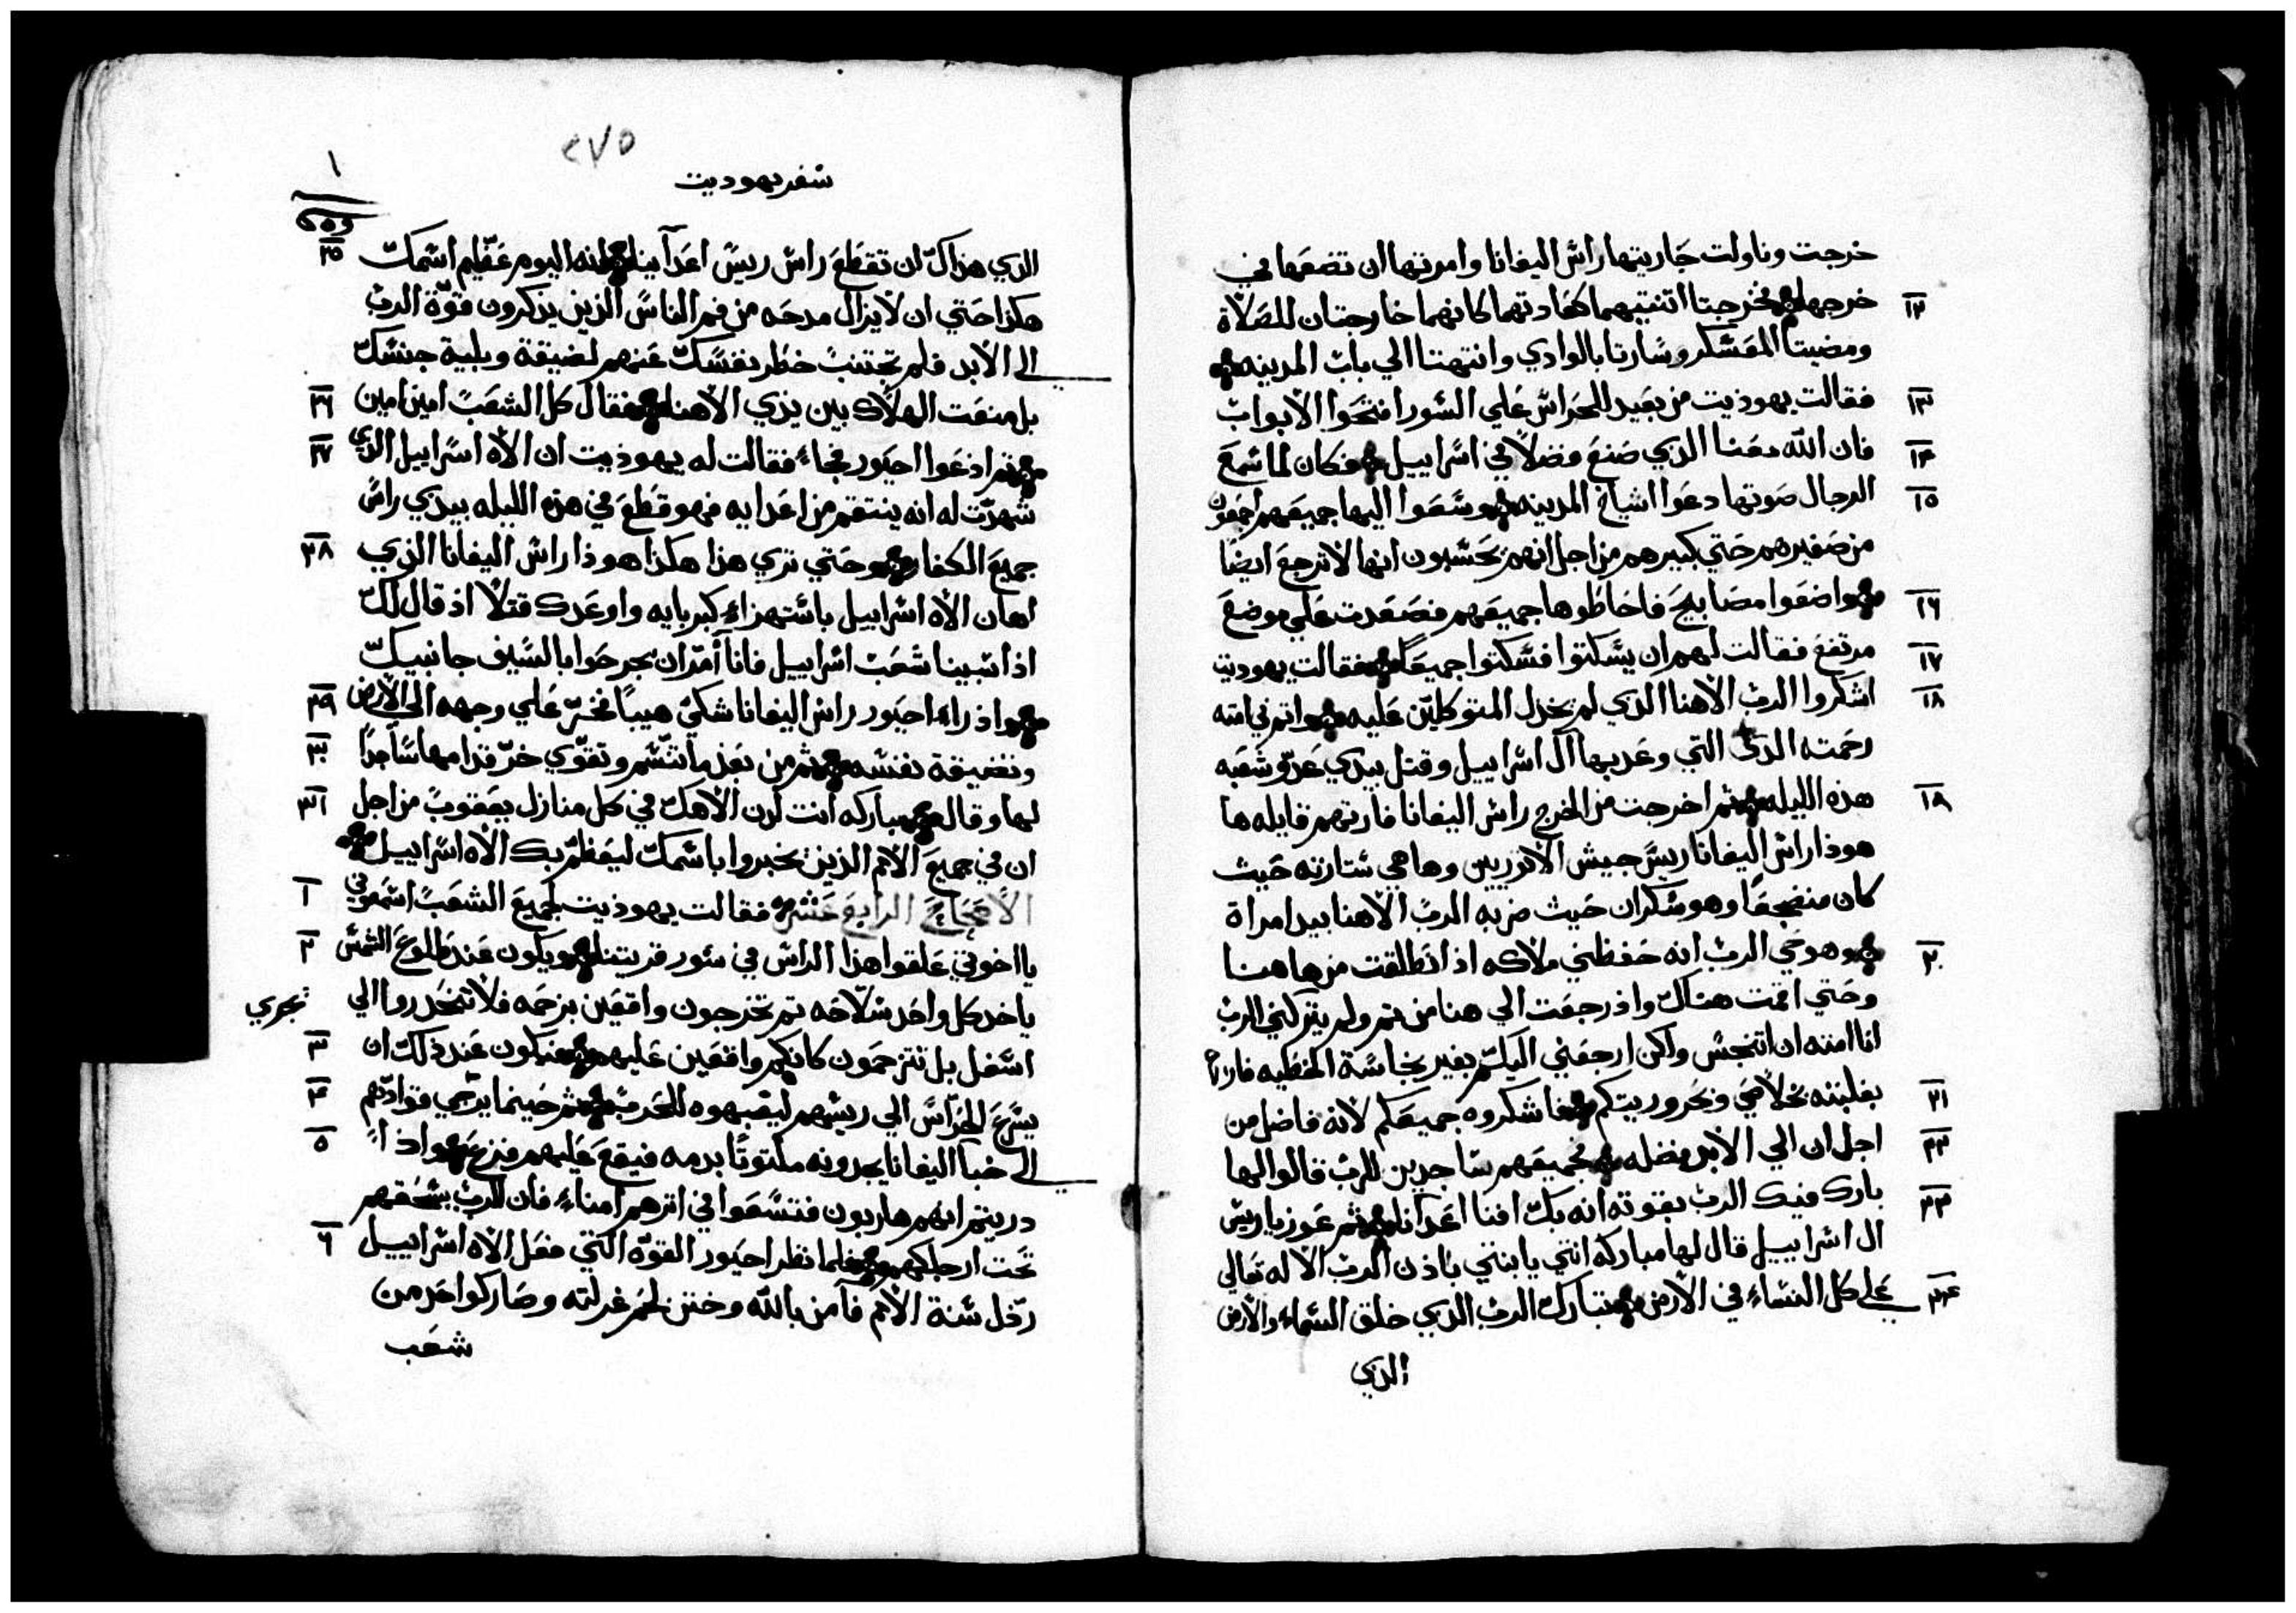 خرجت وناولت جاريتها راس اليفانا وامرتها ان تضعها في
١٢ خرجها فخرجتا اثنتيهما كعادتهما كانهما خارجتان للصلاة
ومضيتا المعسكر وسارتا بالوادي وانتهتا الي باب المدينه
١٣ فقالت يهوذيت من بعيد للحراس علي السور افتحوا الابواب
١٤ فان الله معنا الذي صنع فضلاً في اسراييل فكان لما سمع
١٥ الرجال صوتها دعوا اشياخ المدينه وسعوا اليها جميعهم اجمعون
من صغيرهم حتي كبيرهم من اجل انهم يحسبون انها لا ترجع ايضا
١٦ واضعوا مصابيح فاحاطوها جميعهم فصعدت علي موضع
١٧ مرتفع فقالت لهم ان يسكتوا فسكتوا جميعاً فقالت يهوديت
١٨ اشكروا الرب الاهنا الذي لم يخذل المتوكلين عليه واتم في امته
رحمته التي وعد بها ال اسراييل وقتل بيدي عدو شعبه
١٨ هذه الليله ثم اخرجت من الخرج راس اليفانا فارتهم قايله ها
هوذا راس اليفانا ريس جيش الاثوريين وها هي ستارته حيث
كان منضجعاً وهو سكران حيث ضربه الرب الاهنا بيد امراة
٢٠ وهو حي الرب انه حفظني ملاكه اذ انطلقت من هاهنا
وحتي اقمت هناك واذ رجعت الي هنا من ثم ولم يتركني الرب
انا امته ان اتنجس ولكن ارجعني اليكم بغير نجاسة الخطيه
٢١ بغلبته بخلاصي وتحروريتكم فاشكروه جميعكم لانه فاضل من
٢٢ اجل ان الي الابد فضله فجميعهم ساجدين للرب قالوا لها
٢٣ بارك فيك الرب بقوته انه بك افنا اعدانا ثم عوزيا ريس
ال اسراييل قال لها مباركة انتي يا بنتي باذن الرب الاله تعالي
٢٤ علي كل النساء في الارض تبارك الرب الذي خلق السماء والارض
الذي
٢٧٥
سفر يهوديت
١
الذي هداك ان تقطع راس ريس اعداينا انه اليوم عظم اسمك ٢٥
هكذا حتي ان لا يزال مدحه من فم الناس الذين يذكرون قوة الرب
الي الابد فلم تجتنب خطر نفسك عنهم لضيقة وبلية جنسك
بل منعت الهلاك بين يدي الاهنا فقال كل الشعب امين امين ٢٦
ثم اذعوا احيور فجاء فقالت له يهوذيت ان الاه اسراييل الذي ٢٧
شهدت له انه ينتقم من اعدايه فهو قطع في هذه الليله بيدي راس
جميع الكفار وحتي تري هذا هكذا هوذا راس اليفانا الذي ٢٨
اهان الاه اسراييل باستهزاء كبريايه واوعدك قتلاً اذ قال لك
اذا سبينا شعب اسراييل فانا آمر ان يجرحوا بالسيف جانبيك
واذ راء احيور راس اليفانا شكي هيباً فخر علي وجهه الي الارض ٢٩
وتغيبة نفسه ثم من بعد ما تنسم وتقوي خر قدامها ساجداً ٣٠
لها وقال مباركه انت لدن الاهك في كل منازل يعقوب من اجل ٣١
ان في جميع الامم الذين يخبروا باسمك ليعظم بك الاه اسراييل
الاصحاح الرابع عشر فقالت يهوذيت لجميع الشعب اسمعوني ١
يا اخوتي علقوا هذا الراس في سور قريتنا ويكون عند طلوع الشمس ٢
ياخد كل واحد سلاحه ثم تخرجون واقفين بزحمه فلا تنحدروا الي
تجري
اسفل بل تتزحمون كانكم واقفين عليهم فيكون عند ذلك ان ٣
يسرع الحراس الي ريسهم لينبهوه للحرب ثم حينما يرجي قوادهم ٤
الي خبا اليفانا يجدونه ملتوتا بدمه فيقع عليهم فزع واذا ٥
دريتم انهم هاربون فتسعوا في اثرهم امناء فان الرب يسحقهم
تحت ارجلكم فلما نظر احيور القوة التي فعل الاه اسراييل ٦
رذل سنة الامم فآمن بالله وختن لحم غرلته وصار كواحد من
شعب